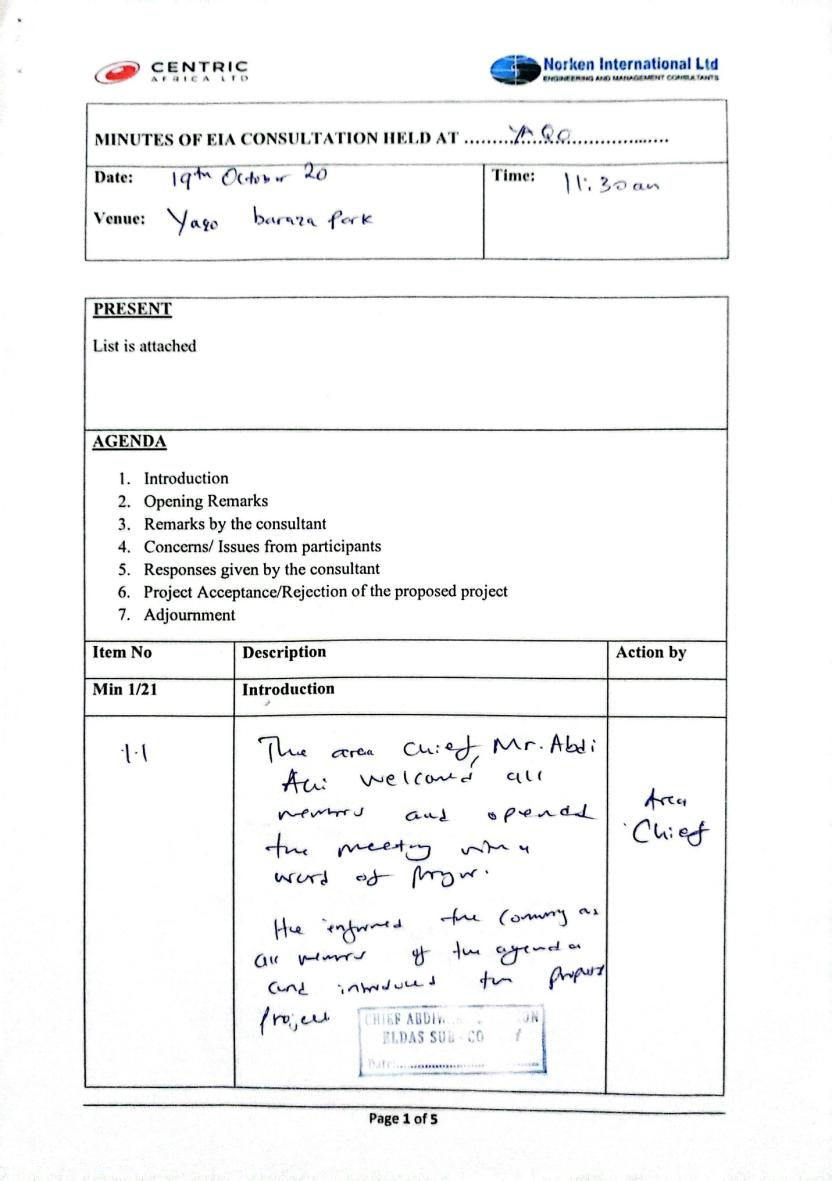 CENTRIC
AFRICA LTD
Norken International Ltd
ENGINEERING AND MANAGEMENT CONSULTANTS
MINUTES OF EIA CONSULTATION HELD AT ........YAQO........................
Date: 19th October 20
Time: 11:30am
Venue: Yaqo baraza Park
PRESENT
List is attached
AGENDA
1. Introduction
2. Opening Remarks
3. Remarks by the consultant
4. Concerns/ Issues from participants
5. Responses given by the consultant
6. Project Acceptance/Rejection of the proposed project
7. Adjournment
Item No Description Action by
Min 1/21 Introduction
1.1
The area Chief, Mr. Abdi
welcomed all
members and opened
the meeting with a
word of prayer.
Area
Chief
He informed the as
all members of the agenda
and introduced the proposed
project
CHIEF
ELDAS SUB - CO
Date:
Page 1 of 5